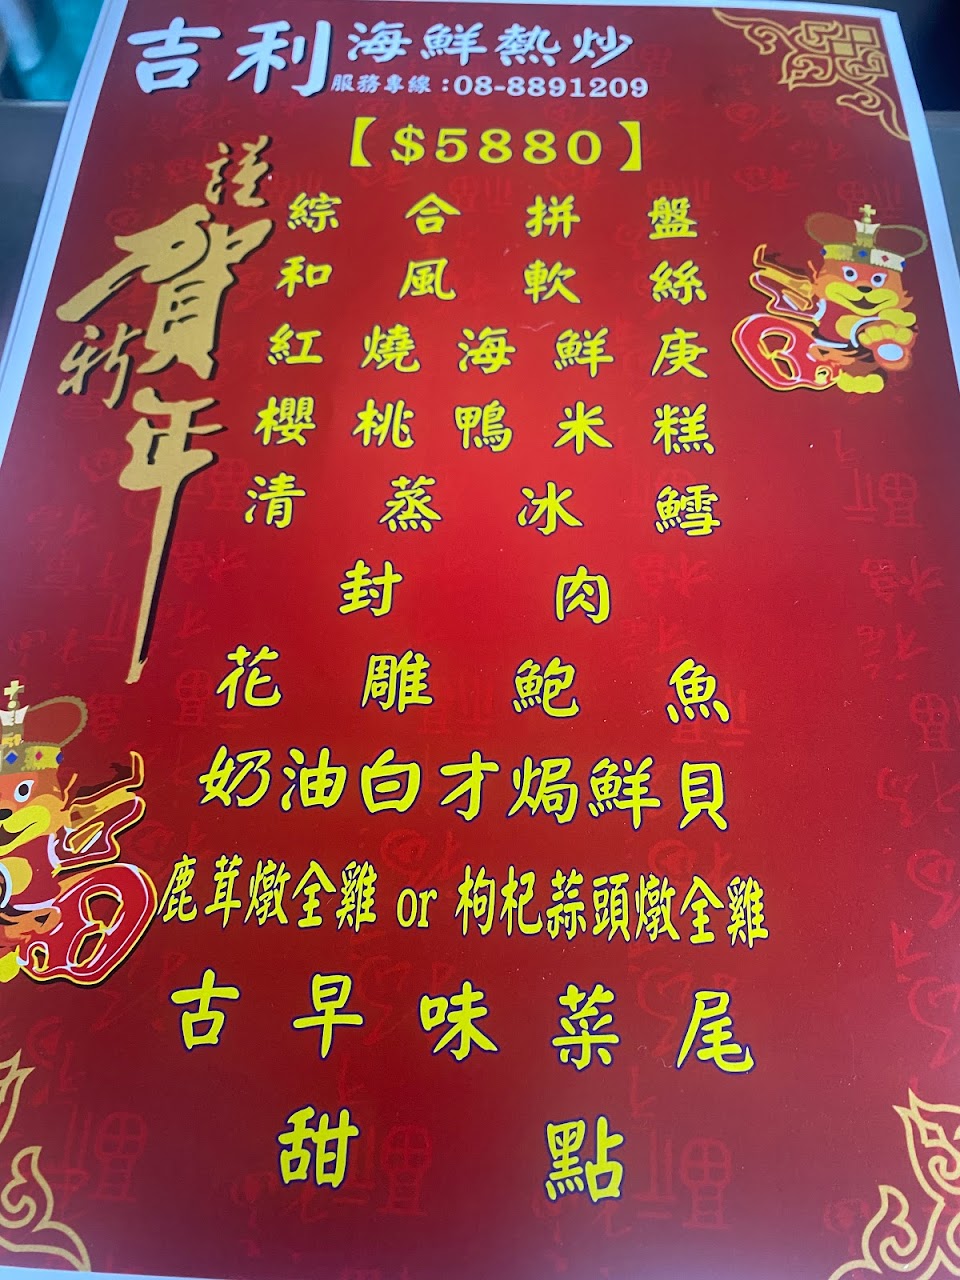 吉利海鮮熱炒
服務專線：08-8891209
【$5880】
謹
賀
新
年
綜合拼盤
和風軟絲
紅燒海鮮庚
櫻桃鴨米糕
清蒸冰鱈
封肉
花雕鮑魚
奶油白才焗鮮貝
鹿茸燉全雞 or 枸杞蒜頭燉全雞
古早味菜尾
甜點